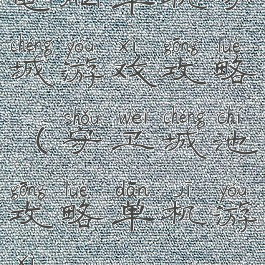 chéng yóu xì gōng lüè
城游戏攻略
shǒu wèi chéng chí
（守卫城池
gōng lüè dān jī yóu
攻略单机游